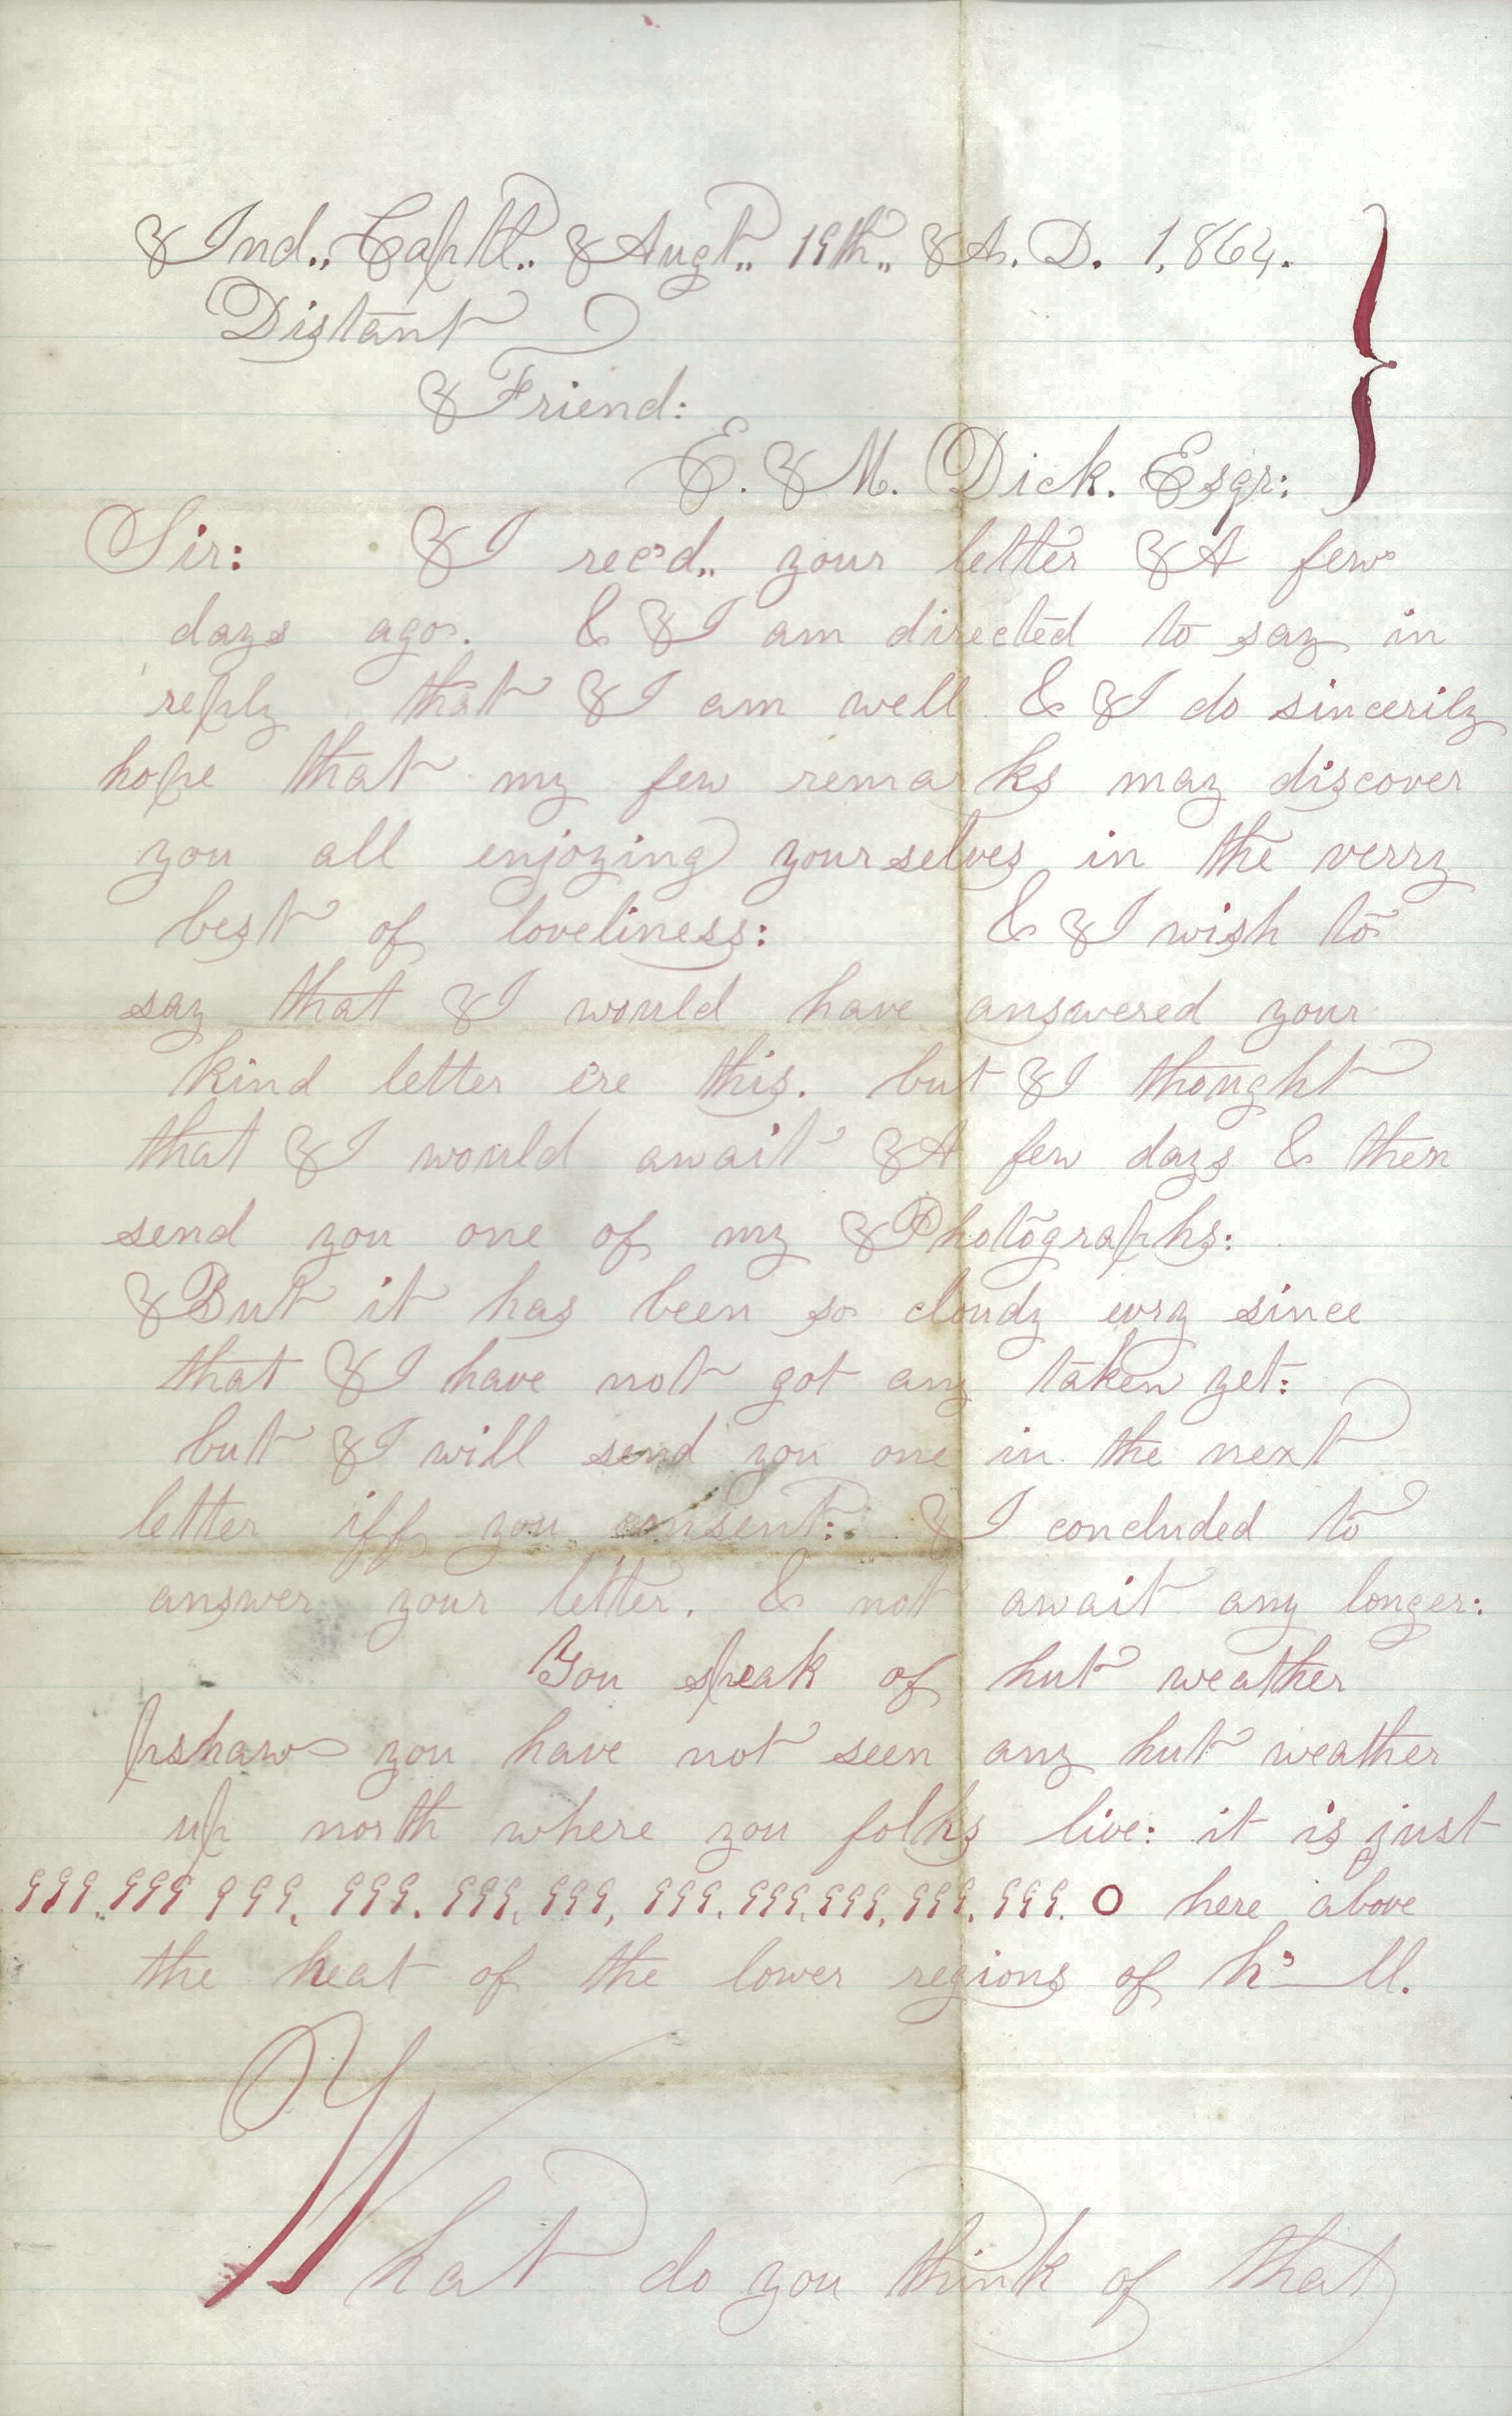 Ind., Captl., Augt., 19th., A. D. 1,864.
Distant
Friend:
E. M. Dick. Esqr:
Sir: I rec'd., your letter A few
days ago. & I am directed to say in
reply that I am well & I do sincerily
hope that my few remarks may discover
you all enjoying yourselves in the verry
best of loveliness: & I wish to
say that I would have answered your
kind letter ere this. but I thought
that I would await A few days & then
send you one of my Photographs:
But it has been so cloudy evry since
that I have not got any taken yet:
but I will send you one in the next
letter iff you consent: I concluded to
answer your letter. & not await any longer:
You speak of hut weather
pshaw you have not seen any hut weather
up north where you folks live: it is just
999.,999 999, 999. 999, 999, 999. 999, 999, 999, 999. 0 here above
the heat of the lower regions of h'—ll.
What do you think of that